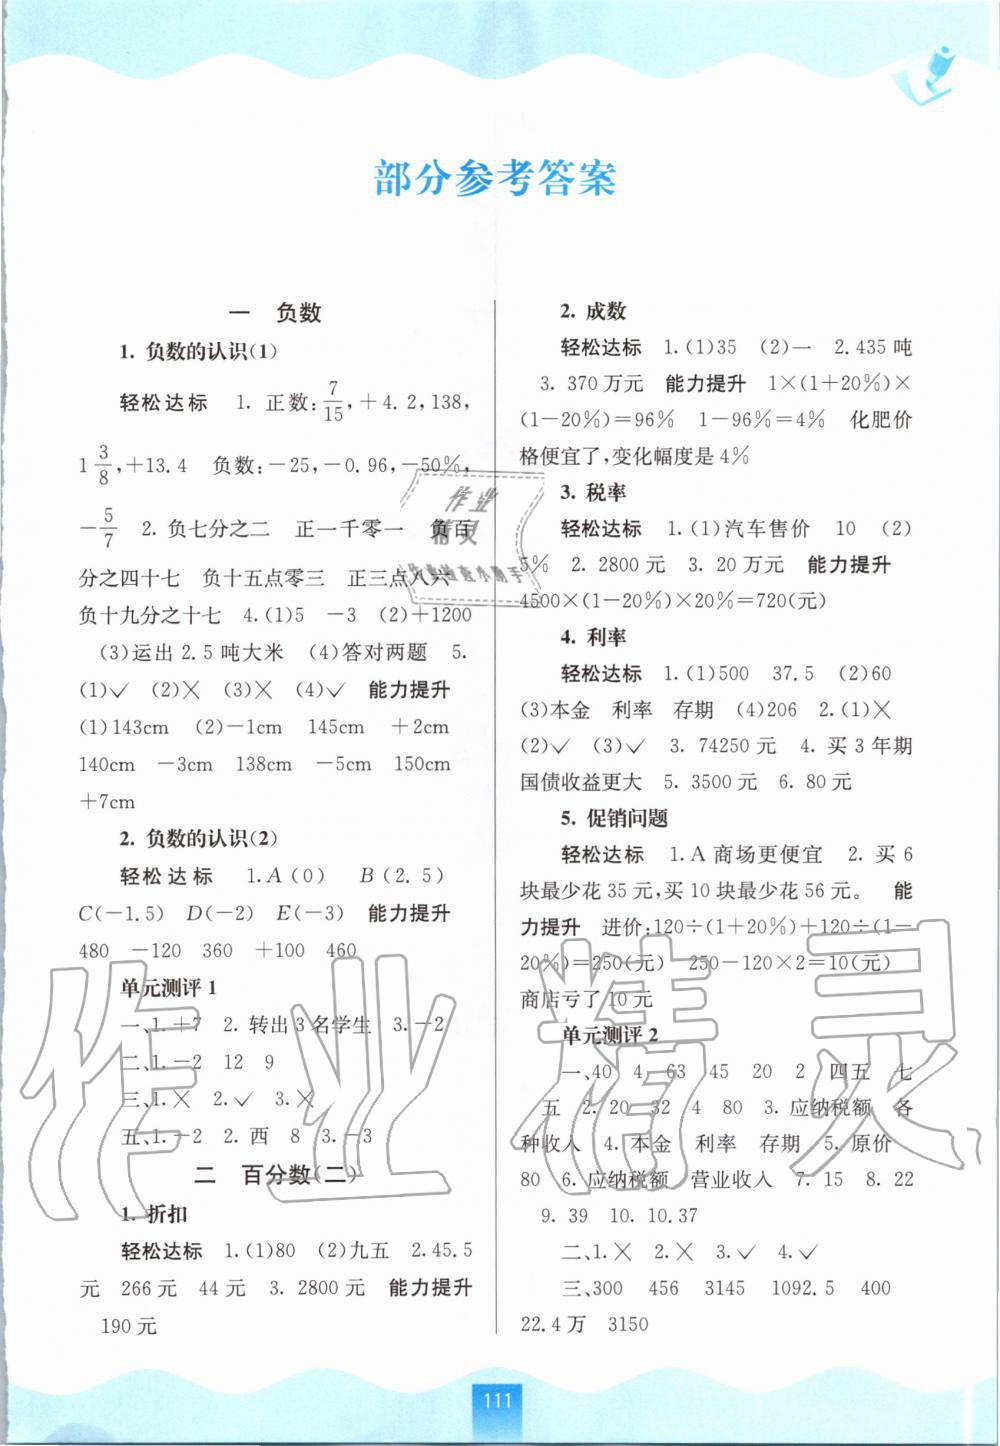 部分参考答案
一 负数
1. 负数的认识(1)
轻松达标 1. 正数: 7/15, +4.2, 138,
1 3/8, +13.4 负数: -25, -0.96, -50%,
-5/7 2. 负七分之二 正一千零一 负百
分之四十七 负十五点零三 正三点八六
负十九分之十七 4.(1)5 -3 (2)+1200
(3)运出2.5吨大米 (4)答对两题 5.
(1)✓ (2)× (3)× (4)✓ 能力提升
(1)143cm (2)-1cm 145cm +2cm
140cm -3cm 138cm -5cm 150cm
+7cm
2. 负数的认识(2)
轻松达标 1.A(0) B(2.5)
C(-1.5) D(-2) E(-3) 能力提升
480 -120 360 +100 460
单元测评1
一、1.+7 2.转出3名学生 3.-2
二、1.-2 12 9
三、1.× 2.✓ 3.×
五、1.-2 2.西 8 3.-3
二 百分数(二)
1. 折扣
轻松达标 1.(1)80 (2)九五 2.45.5
元 266元 44元 3. 2800元 能力提升
190元
2. 成数
轻松达标 1.(1)35 (2)一 2.435吨
3. 370万元 能力提升 1×(1+20%)×
(1-20%)=96% 1-96%=4% 化肥价
格便宜了,变化幅度是4%
3. 税率
轻松达标 1.(1)汽车售价 10 (2)
5% 2. 2800元 3. 20万元 能力提升
4500×(1-20%)×20%=720(元)
4. 利率
轻松达标 1.(1)500 37.5 (2)60
(3)本金 利率 存期 (4)206 2.(1)×
(2)✓ (3)✓ 3. 74250元 4. 买3年期
国债收益更大 5. 3500元 6. 80元
5. 促销问题
轻松达标 1.A商场更便宜 2. 买6
块最少花35元,买10块最少花56元。 能
力提升 进价:120÷(1+20%)+120÷(1-
20%)=250(元) 250-120×2=10(元)
商店亏了10元
单元测评2
一、40 4 63 45 20 2 四五 七
五 2. 20 32 4 80 3. 应纳税额 各
种收入 4. 本金 利率 存期 5. 原价
80 6. 应纳税额 营业收入 7. 15 8. 22
9. 39 10. 10.37
二、1.× 2.× 3.✓ 4.✓
三、300 456 3145 1092.5 400
22.4万 3150
111
作业
精灵
作业检查小助手
作业精灵